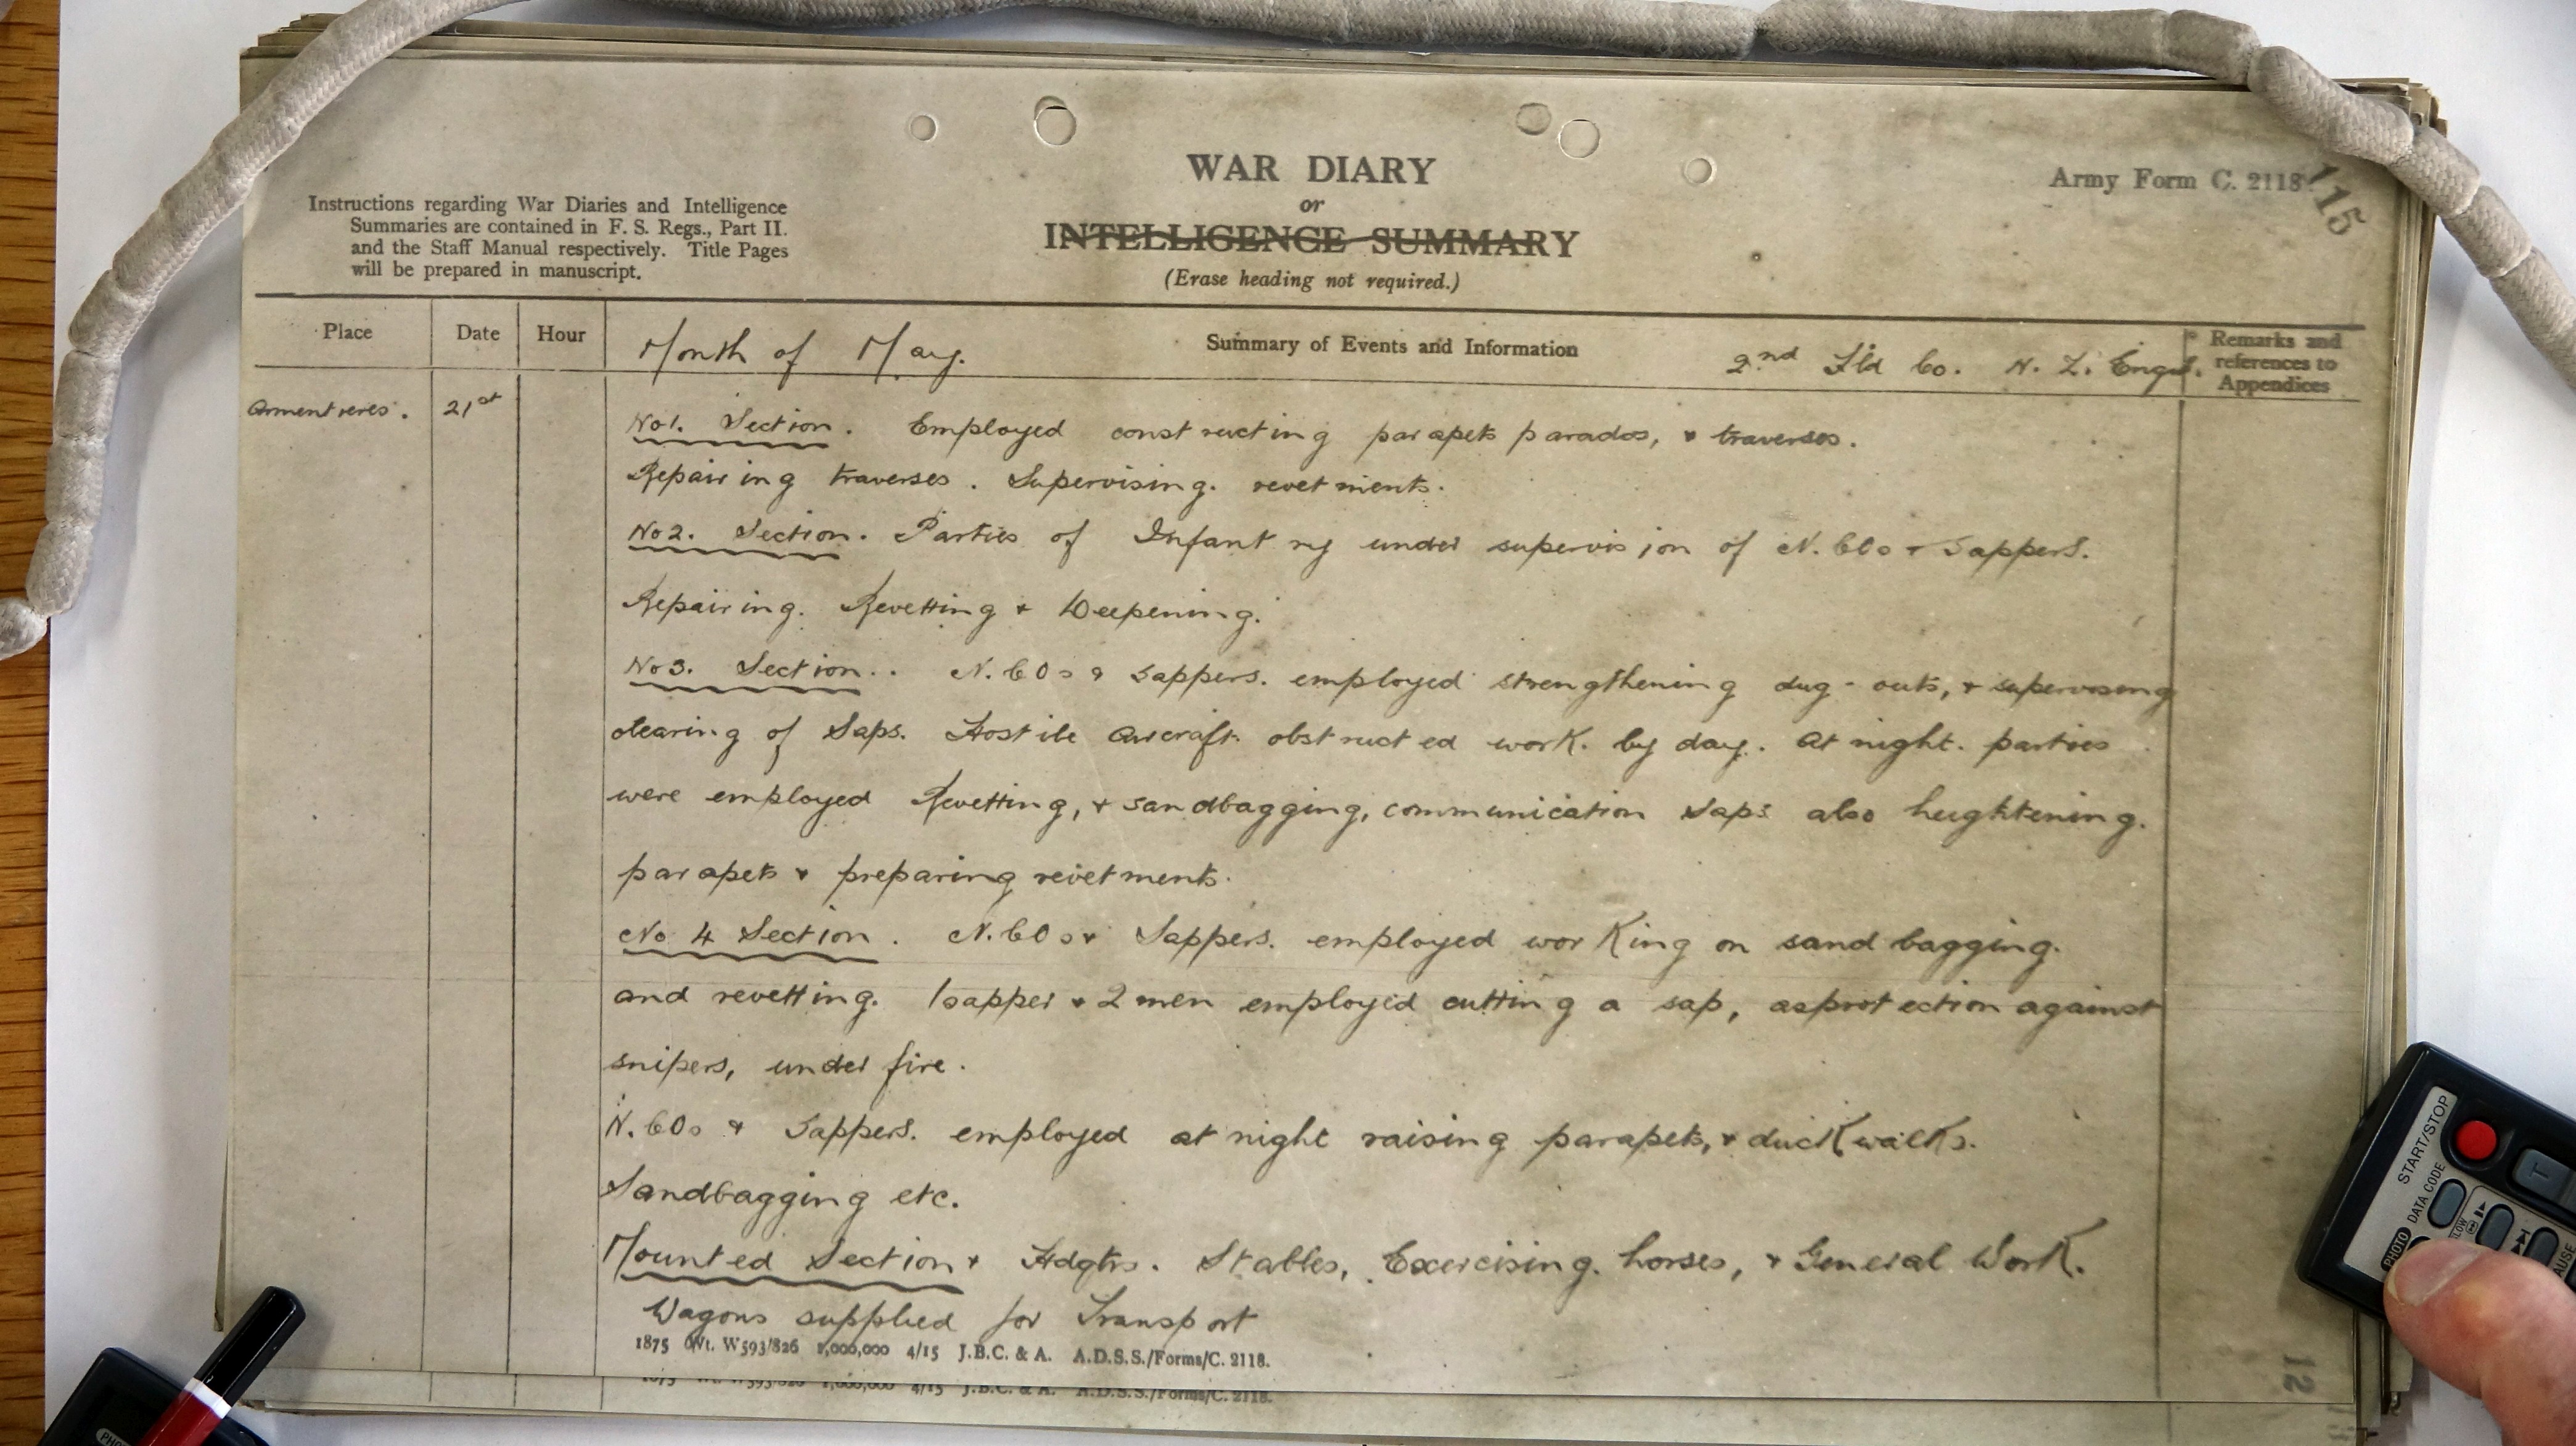 WAR DIARY
or
INTELLIGENCE SUMMARY
(Erase heading not required.)
Army Form C. 2118.
115
Instructions regarding War Diaries and Intelligence
Summaries are contained in F. S. Regs., Part II.
and the Staff Manual respectively. Title Pages
will be prepared in manuscript.
Place Date Hour Month of May. Summary of Events and Information 2nd Fld Co. N. Z. Engrs. Remarks and
references to
Appendices
Armentieres. 21st
No1. Section. Employed constructing parapets parados, & traverses.
Repairing traverses. Supervising. revetments.
No2. Section. Parties of Infantry under supervision of N.COs & Sappers.
Repairing. Revetting & Deepening.
No3. Section.. N.COs & Sappers. employed strengthening dug-outs, & supervising
clearing of Saps. Hostile aircraft obstructed work. by day. At night. parties
were employed Revetting, & sandbagging, communication saps also heightening.
parapets & preparing revetments.
No 4 Section. N.COs & Sappers. employed working on sand bagging.
and revetting. 1sapper & 2 men employed cutting a sap, asprotection against
snipers, under fire.
N.COs & Sappers. employed at night raising parapets, & duckwalks.
Sandbagging etc.
Mounted Section & Hdqtrs. Stables, Exercising. horses, & General Work.
Wagons supplied for Transport
1875 Wt. W593/826 1,000,000 4/15 J.B.C. & A. A.D.S.S./Forms/C. 2118.
1875 Wt. W593/826 1,000,000 4/15 J.B.C. & A. A.D.S.S./Forms/C. 2118.
12
START/STOP
DATA CODE
PHOTO
SLOW
T